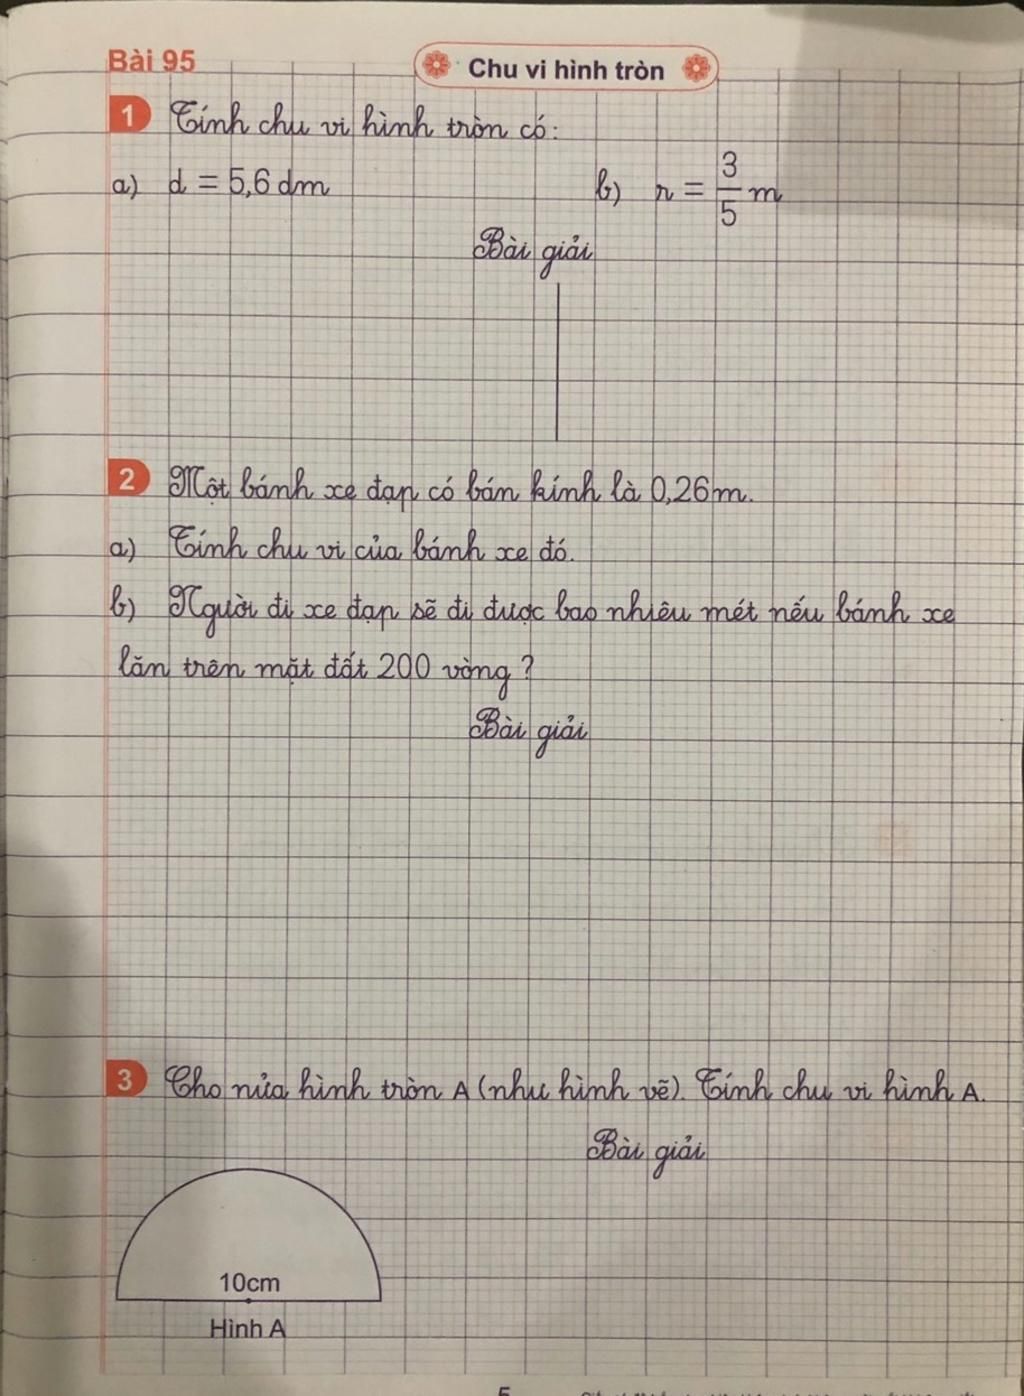 Bài 95
Chu vi hình tròn
1 Tính chu vi hình tròn có:
a) d = 5,6 dm b) r = 3/5 m
Bài giải
2 Một bánh xe đạp có bán kính là 0,26m.
a) Tính chu vi của bánh xe đó.
b) Người đi xe đạp sẽ đi được bao nhiêu mét nếu bánh xe
lăn trên mặt đất 200 vòng?
Bài giải
3 Cho nửa hình tròn A (như hình vẽ). Tính chu vi hình A.
Bài giải
10cm
Hình A
5